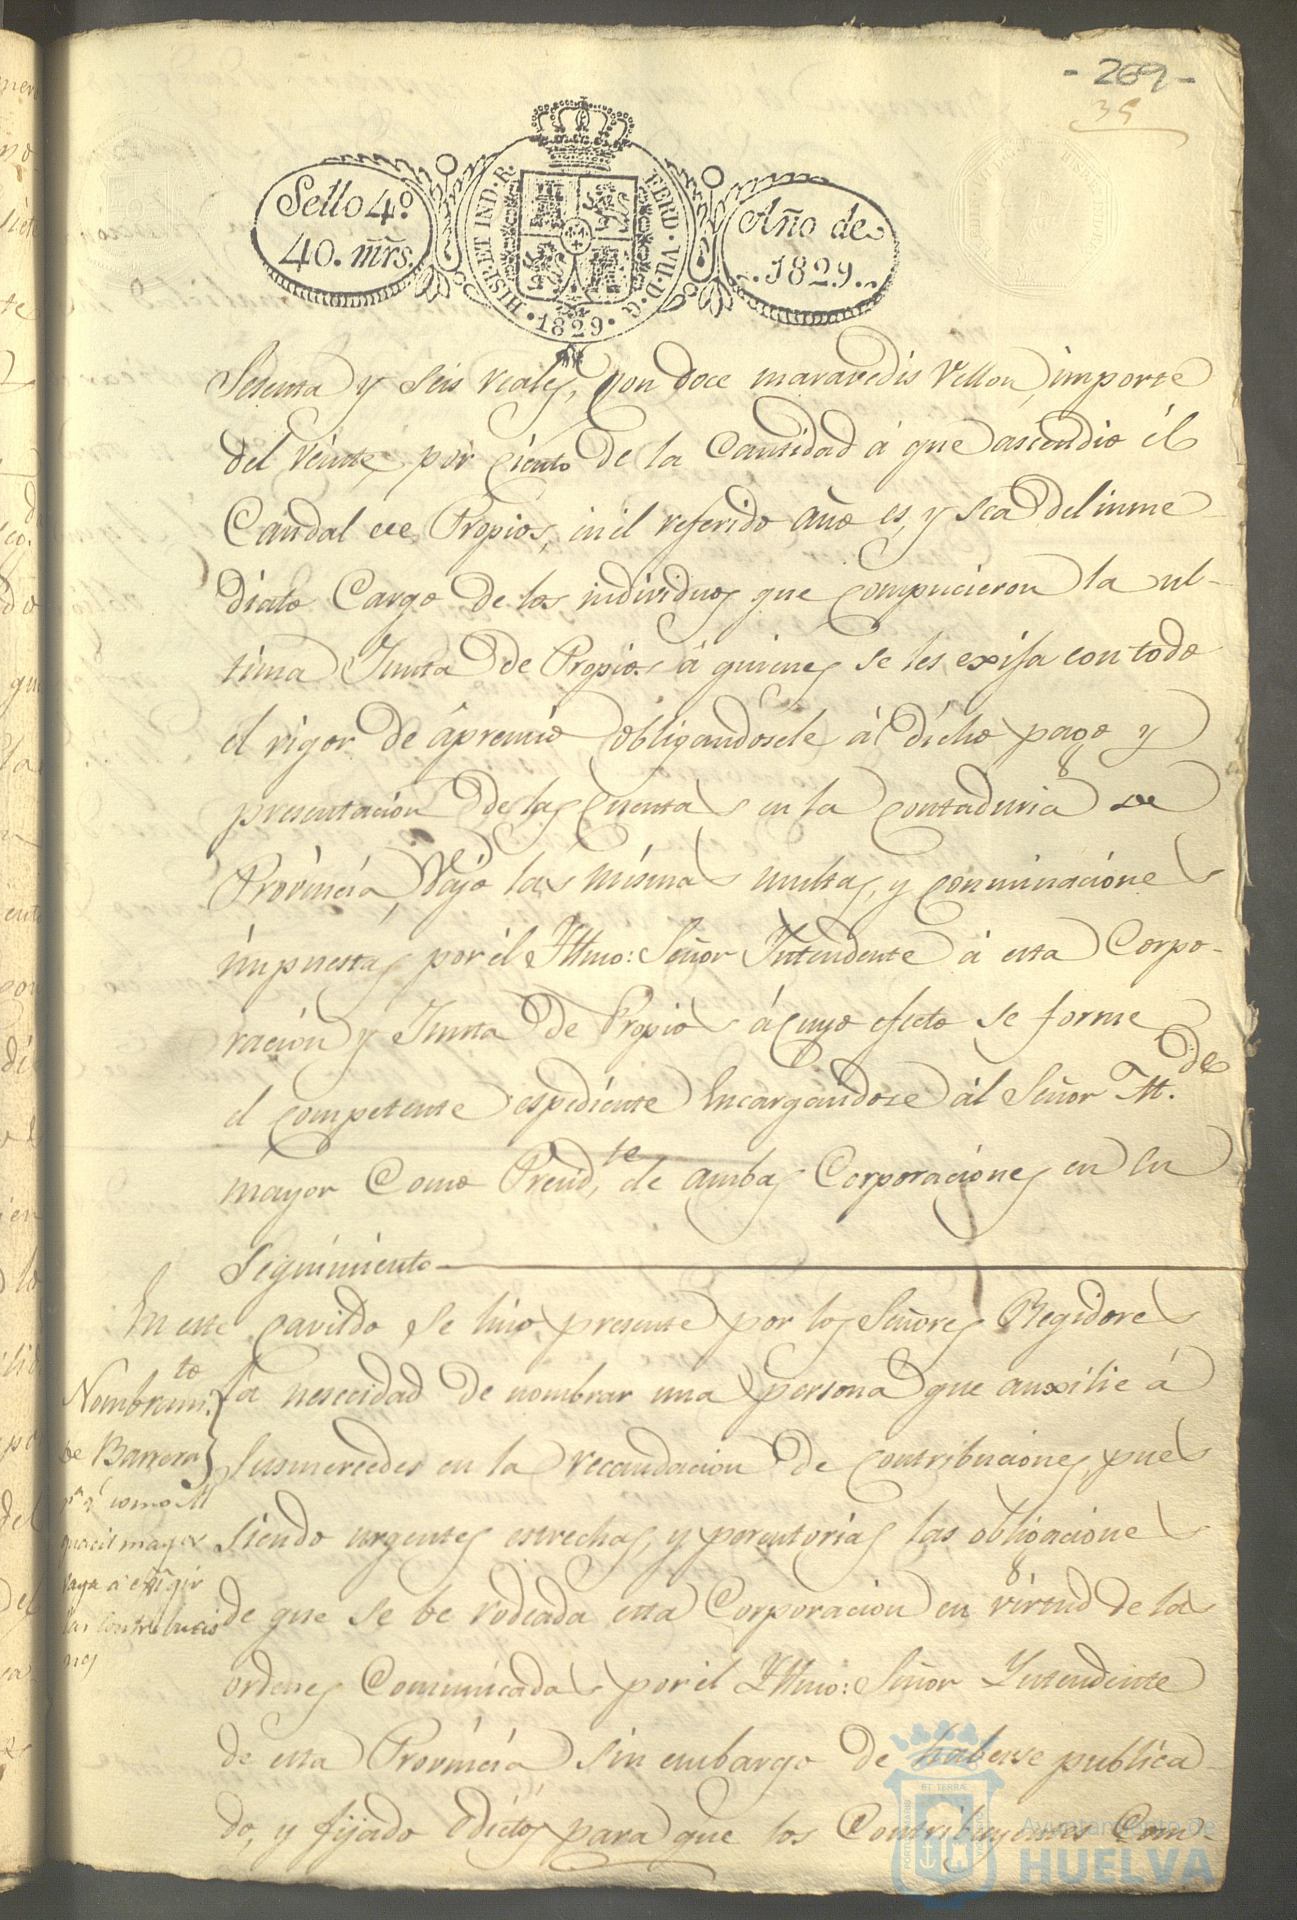 - 269 -
35
Sello 4º
40. mrs.
HISP. ET IND. R.
FERD. VII. D. G.
1829
Año de
1829
Setenta y seis reales, con doce maravedis vellon, importe
del veinte por ciento de la Cantidad á que ascendió él
Caudal de Propios, en él referido año es, y sea del inme
diato Cargo de los individuos que compucieron la ul-
tima Junta de Propios á quienes se les exija con todo
el rigor de ápremio obligandosele á dicho pago y
presentacion de las Cuentas en la Contaduria de
Provincia, vajo las mismas multas, y conminaciones
impuestas por él Yltmo: Señor Yntendente á esta Corpo-
racion y Junta de Propios á cuyo efecto se forme
el competente espediente Encargandose ál Señor Al.de
mayor Como Presid.te de ambas Corporaciones en su
Seguimiento
En este cavildo se hizo presente por los Señores Regidores
Nombram.to
la nesecidad de nombrar una persona que auxilie á
de Barrera
Susmercedes en la recaudacion de contribuciones, pues
pª q.e como Al
guacil mayor
siendo urgentes estrechas, y perentorias las obligaciones
vaya á exigir
las contribucio
nes
de que se be rodeada esta Corporacion en virtud de las
ordenes Comunicadas por él Yltmo: Señor Yntendente
de esta Provincia sin embargo de haberse publica-
do, y fijado Edictos para que los Contribuyentes Com-
PORTUS MARIS
ET TERRÆ
CUSTODIA
Ayuntamiento de
HUELVA